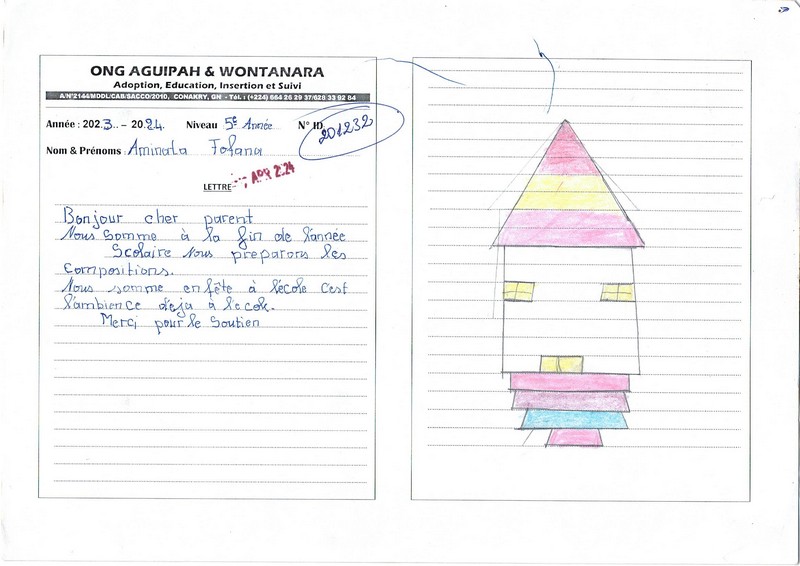 ONG AGUIPAH & WONTANARA
Adoption, Education, Insertion et Suivi
Année : 2023.. - 2024. Niveau 5e Année N° ID 201232
Nom & Prénoms : Aminata Fofana
LETTRE APR 2024
Bonjour cher parent
Nous Somme à la fin de l'année
Scolaire Nous preparons les
Compositions.
Nous somme en fête à l'école C'est
l'ambience deja à l'ecole.
Merci pour le Soutien